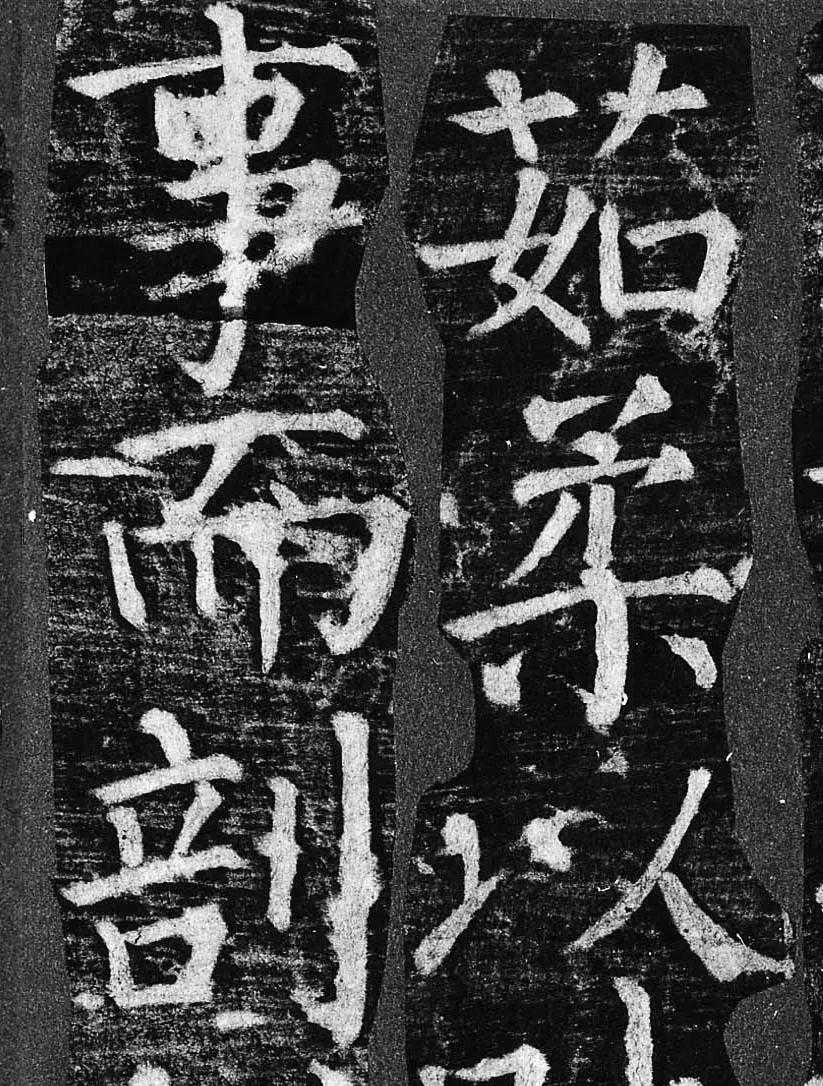 茹柔以
事而剖